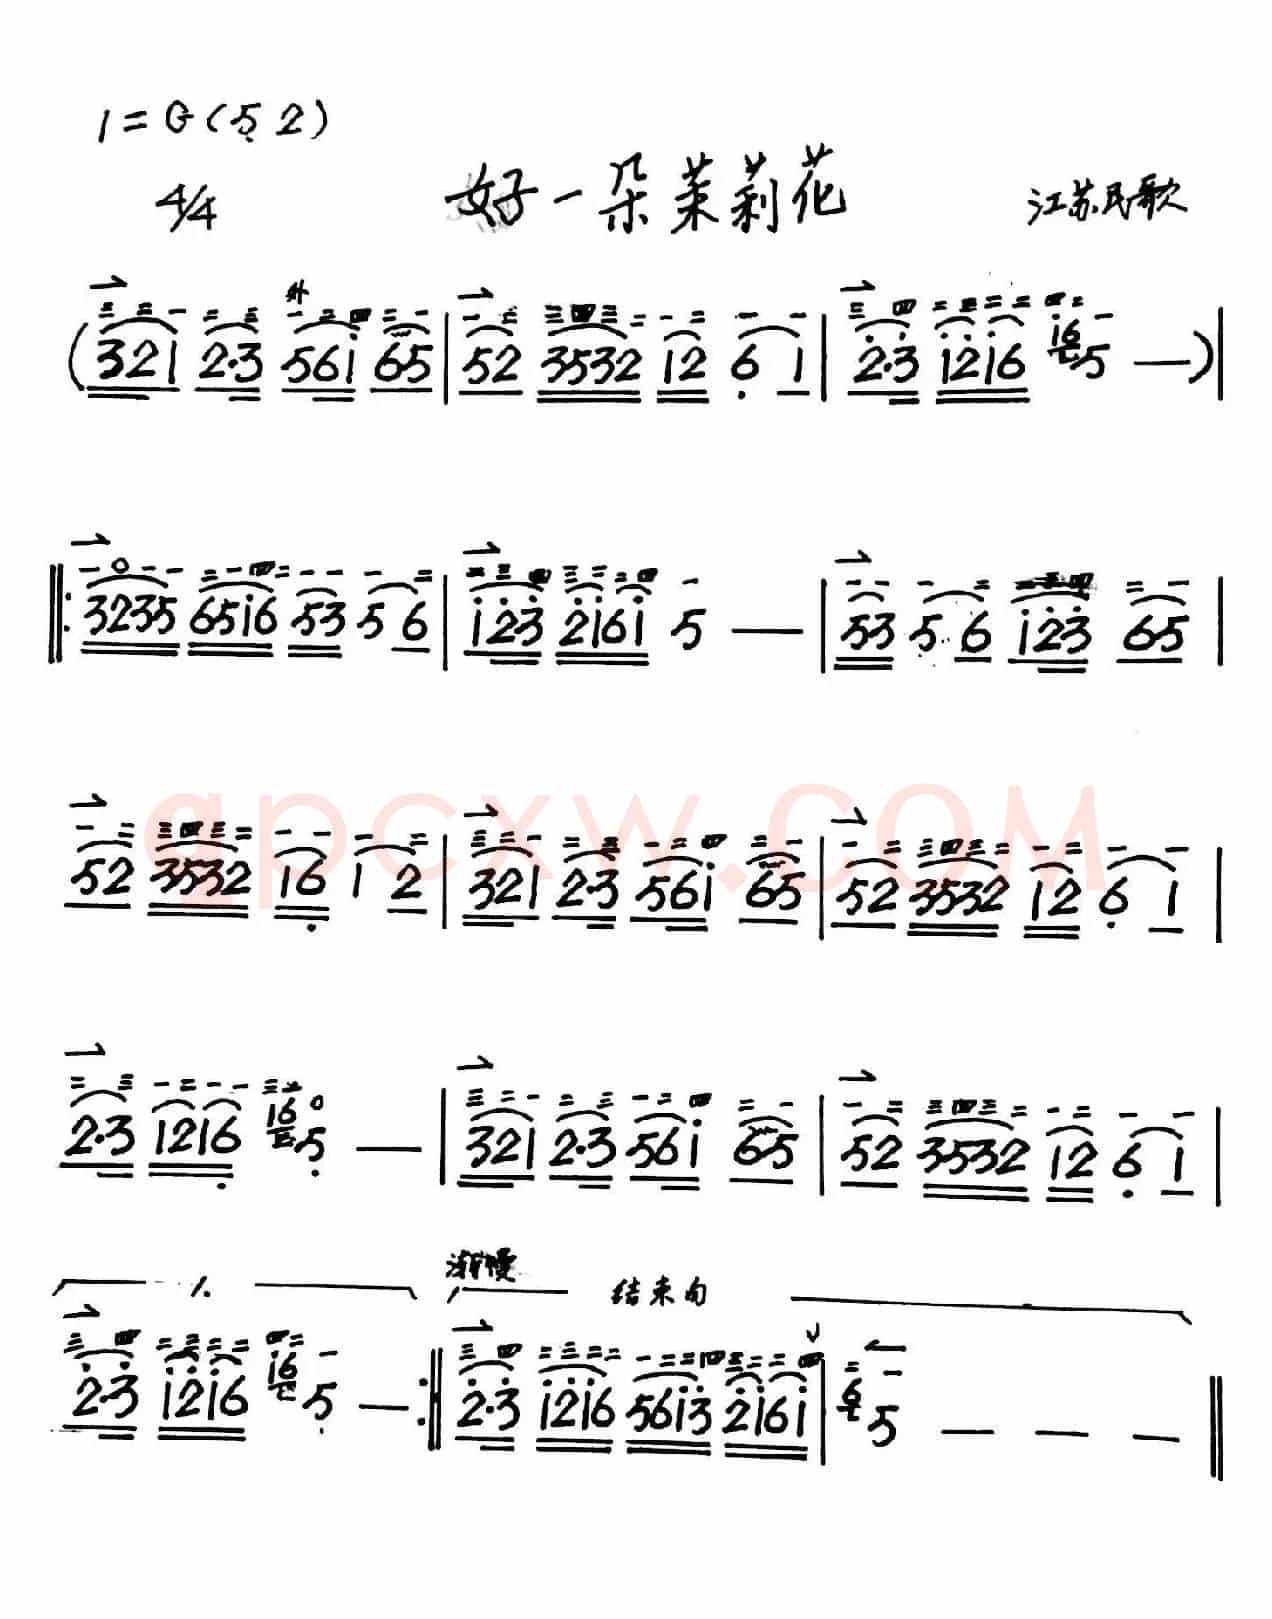 1=G(5̣ 2)
4/4
好一朵茉莉花
江苏民歌
外
(321 2·3 561̇ 65 | 52 3532 12 6̣ 1 | 2̇·3̇ 1̇2̇1̇6 1̇65 —)|
‖: 3235 651̇6 53 5 6 | 1̇2̇3̇ 2̇1̇61̇ 5 — | 53 5 6 1̇2̇3̇ 65 |
52 3532 16̣ 1 2 | 321 2·3 561̇ 65 | 52 3532 12 6̣ 1 |
2·3 1216̣ 165̣ — | 321 2·3 561̇ 65 | 52 3532 12 6̣ 1 |
渐慢
1. 结束句
2̇·3̇ 1̇2̇1̇6 1̇65 — :‖ 2̇·3̇ 1̇2̇1̇6 561̇3̇ 2̇1̇61̇ | 65 — — — ‖
qpcxw.COM